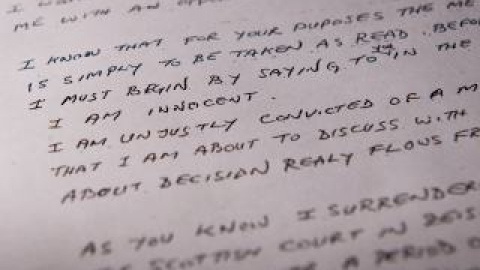 ME WITH AN
I KNOW THAT FOR YOUR PUPOSES THE ME
IS SIMPLY TO BE TAKEN AS READ. BEFO
I MUST BEGIN BY SAYING TO IN THE
I AM INNOCENT.
I AM UNJUSTLY CONVICTED OF A M
THAT I AM ABOUT TO DISCUSS WITH
ABOUT DECISION REALY FLOWS FR
AS YOU KNOW I SURRENDER
SCOTTISH COURT IN
A PERIOD O